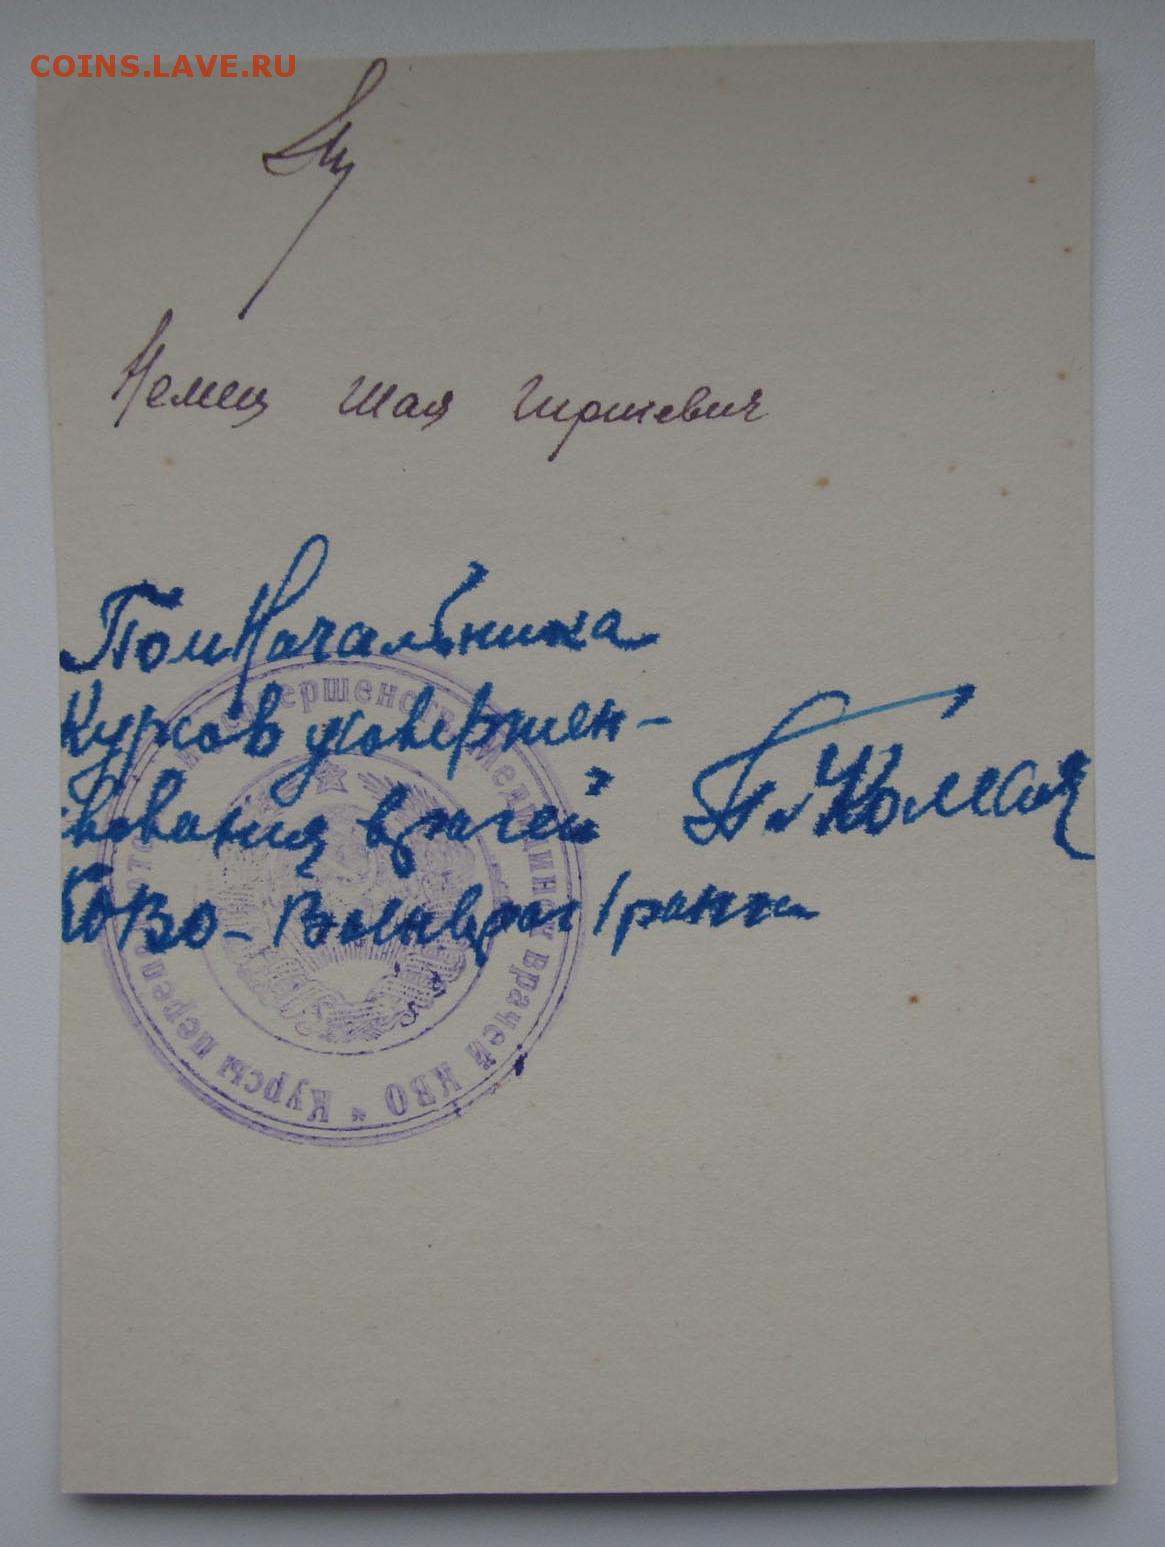 COINS.LAVE.RU
Немец Шая Гершевич
ПомНачальника
Курсов усовершен-
ствования врачей
КОВО - Военврач 1 ранга
Курсы переподготов. и усовершенств. медицинск. врачей КВО *